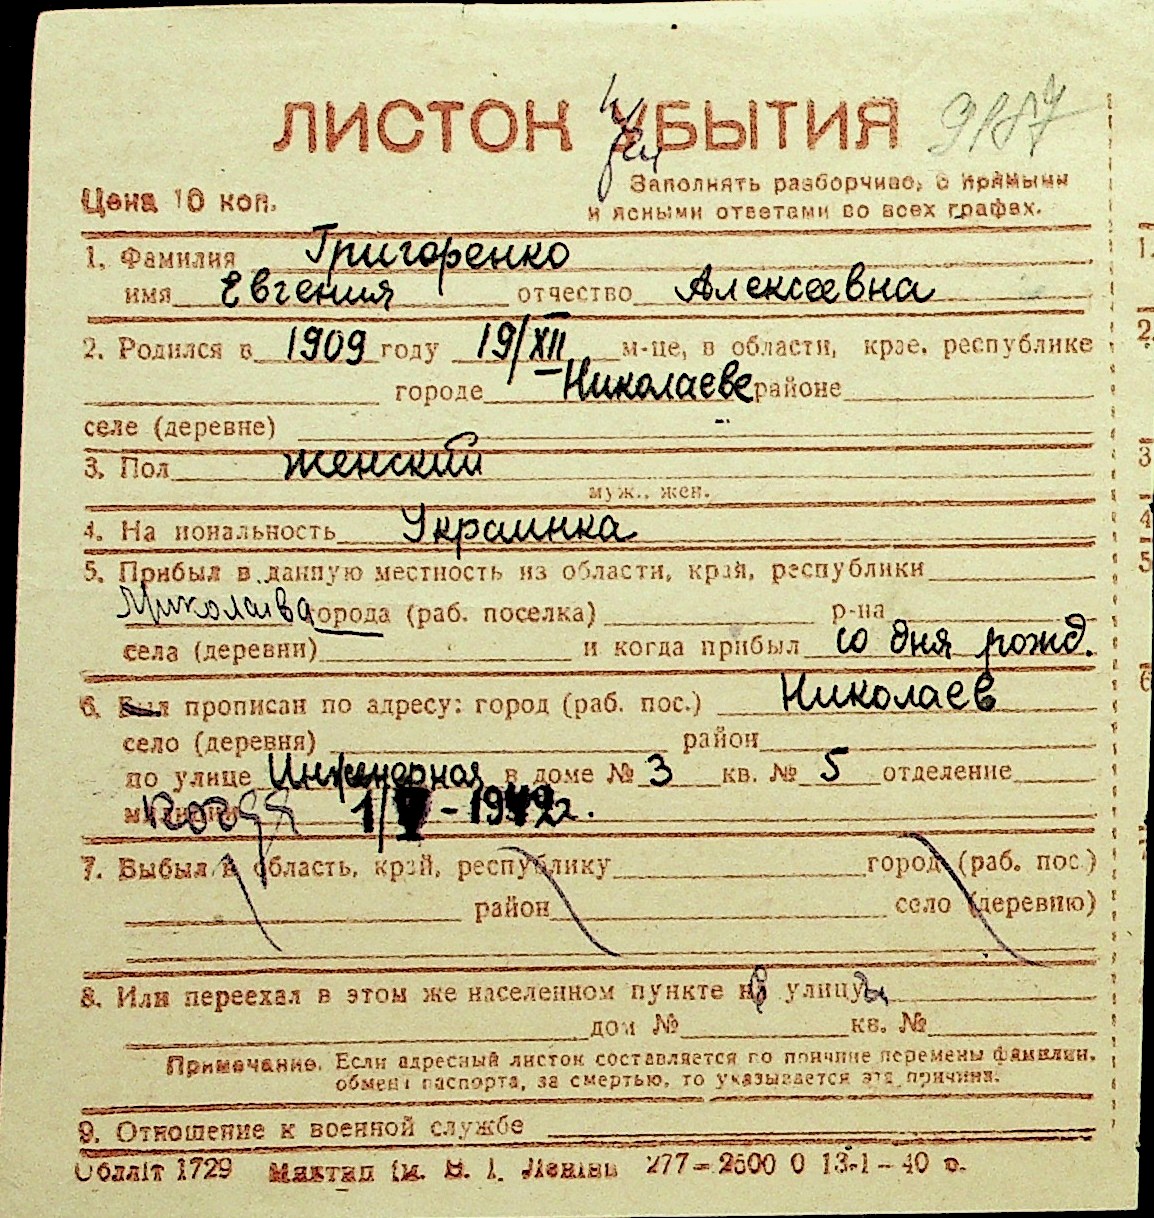 ЛИСТОК УБЫТИЯ
Цена 10 коп.
Заполнять разборчиво, с прямыми
и ясными ответами во всех графах.
1. Фамилия Григоренко
имя Евгения отчество Алексеевна
2. Родился в 1909 году 19/XII м-це, в области, крае, республике
городе Николаеве районе
селе (деревне)
3. Пол женский
муж., жен.
4. На иональность Украинка
5. Прибыл в данную местность из области, край, республики
Николаева города (раб. поселка) р-на
села (деревни) и когда прибыл со дня рожд.
6. Был прописан по адресу: город (раб. пос.) Николаев
село (деревня) район
по улице Инженерная в доме № 3 кв. № 5 отделение
когда 1/ - 1942.
7. Выбыл в область, край, республику город (раб. пос.)
район село (деревню)
8. Или переехал в этом же населенном пункте на улицу
дом № кв. №
Примечание. Если адресный листок составляется по причине перемены фамилии,
обмен паспорта, за смертью, то указывается эта причина.
9. Отношение к военной службе
Обллiт 1729 277—2500 0 13-1—40 р.